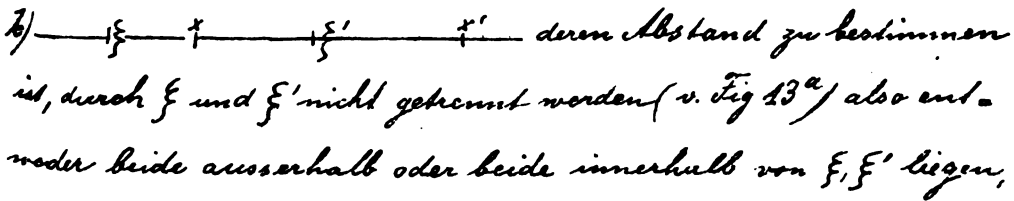 b) ξ x ξ' x' deren Abstand zu bestimmen
ist, durch ξ und ξ' nicht getrennt werden (v. Fig 13a) also ent-
weder beide ausserhalb oder beide innerhalb von ξ, ξ' liegen,